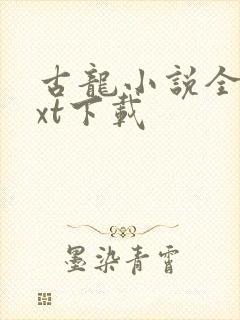 古龍小説全
xt下載
墨染青霄